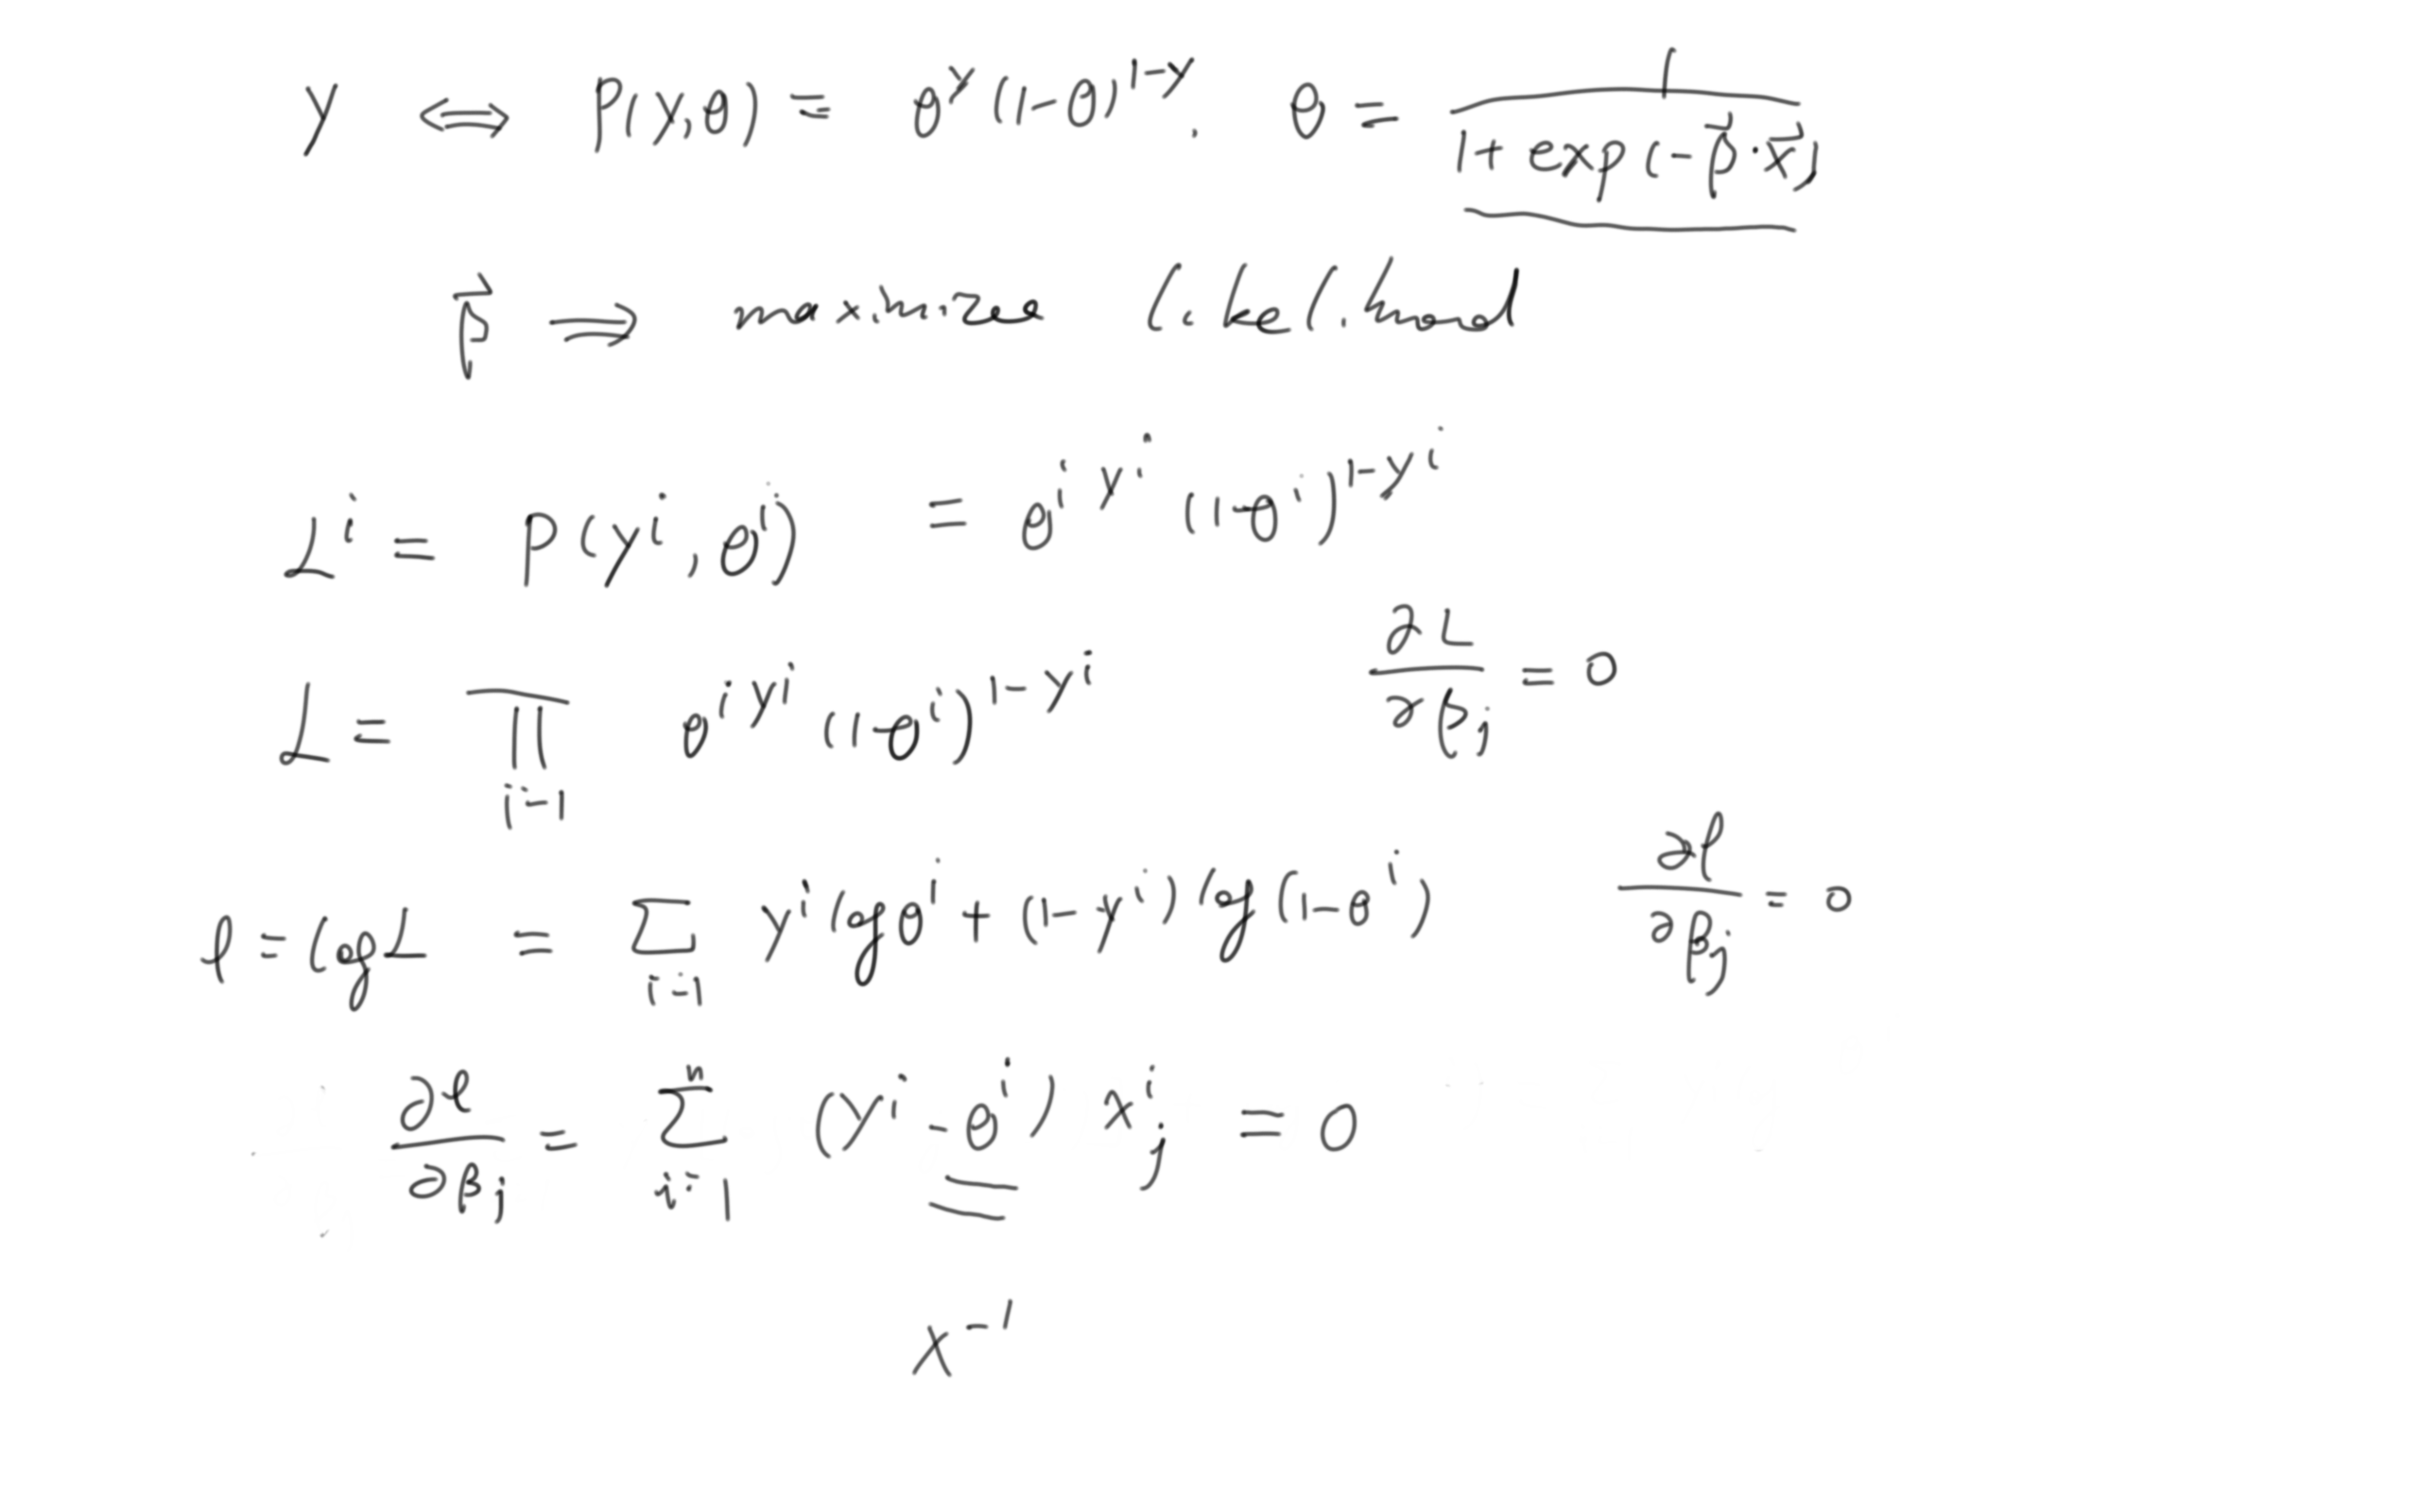 y ⇔ P(y,θ) = θ^y (1-θ)^{1-y} , θ = 1 / (1 + exp(-β⃗·x⃗))
β⃗ ⇒ maximize likelihood
L^i = P(y^i, θ^i) = θ^{i y^i} (1-θ^i)^{1-y^i}
L = ∏_{i=1} θ^{i y^i} (1-θ^i)^{1-y^i} ∂L/∂β_j = 0
ℓ = lgL = ∑_{i=1} y^i lgθ^i + (1-y^i) lg(1-θ^i) ∂ℓ/∂β_j = 0
∂ℓ/∂β_j = ∑_{i=1}^n (y^i - θ^i) x_j^i = 0
x^{-1}